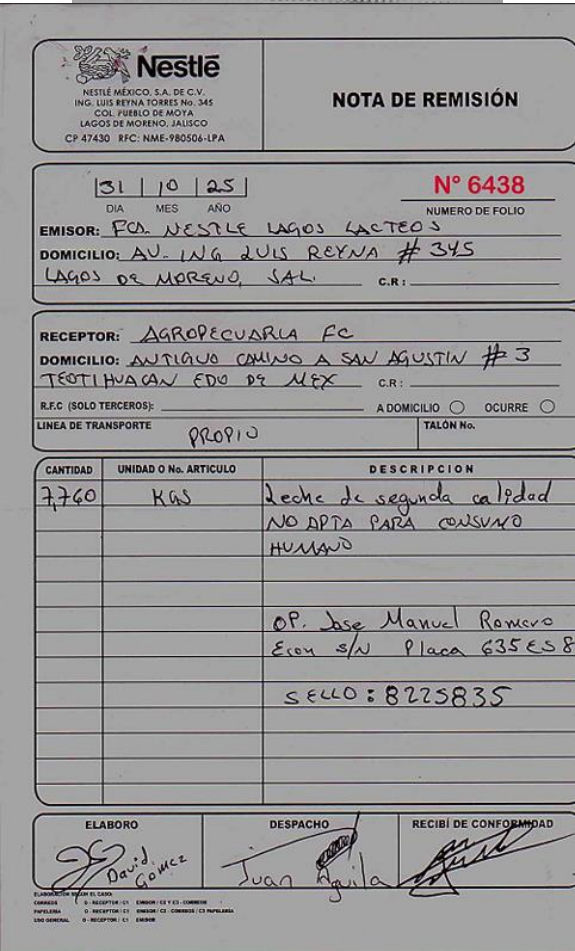 Nestlé
NESTLÉ MÉXICO, S.A. DE C.V.
ING. LUIS REYNA TORRES No. 345
COL. PUEBLO DE MOYA
LAGOS DE MORENO, JALISCO
CP 47430 RFC: NME-980506-LPA
NOTA DE REMISIÓN
31 | 10 | 25
DIA MES AÑO
N° 6438
NUMERO DE FOLIO
EMISOR: FCA. NESTLE LAGOS LACTEOS
DOMICILIO: AV. ING LUIS REYNA # 345
LAGOS DE MORENO, JAL. C.R:
RECEPTOR: AGROPECUARIA FC
DOMICILIO: ANTIGUO CAMINO A SAN AGUSTIN # 3
TEOTIHUACAN EDO DE MEX C.R:
R.F.C (SOLO TERCEROS): A DOMICILIO OCURRE
LINEA DE TRANSPORTE PROPIO TALÓN No.
CANTIDAD UNIDAD O No. ARTICULO DESCRIPCION
7,760 KGS Leche de segunda calidad
NO APTA PARA CONSUMO
HUMANO
OP. Jose Manuel Romero
Econ S/N Placa 635ES8
SELLO: 8225835
ELABORO DESPACHO RECIBÍ DE CONFORMIDAD
David Gomez Juan Aguila
ELABORACIÓN SEGÚN EL CASO:
CORREOS O - RECEPTOR / C1 EMISOR / C2 Y C3 - CORREOS
PAPELERIA O - RECEPTOR / C1 EMISOR / C2 - CORREOS / C3 PAPELERIA
USO GENERAL O - RECEPTOR / C1 EMISOR